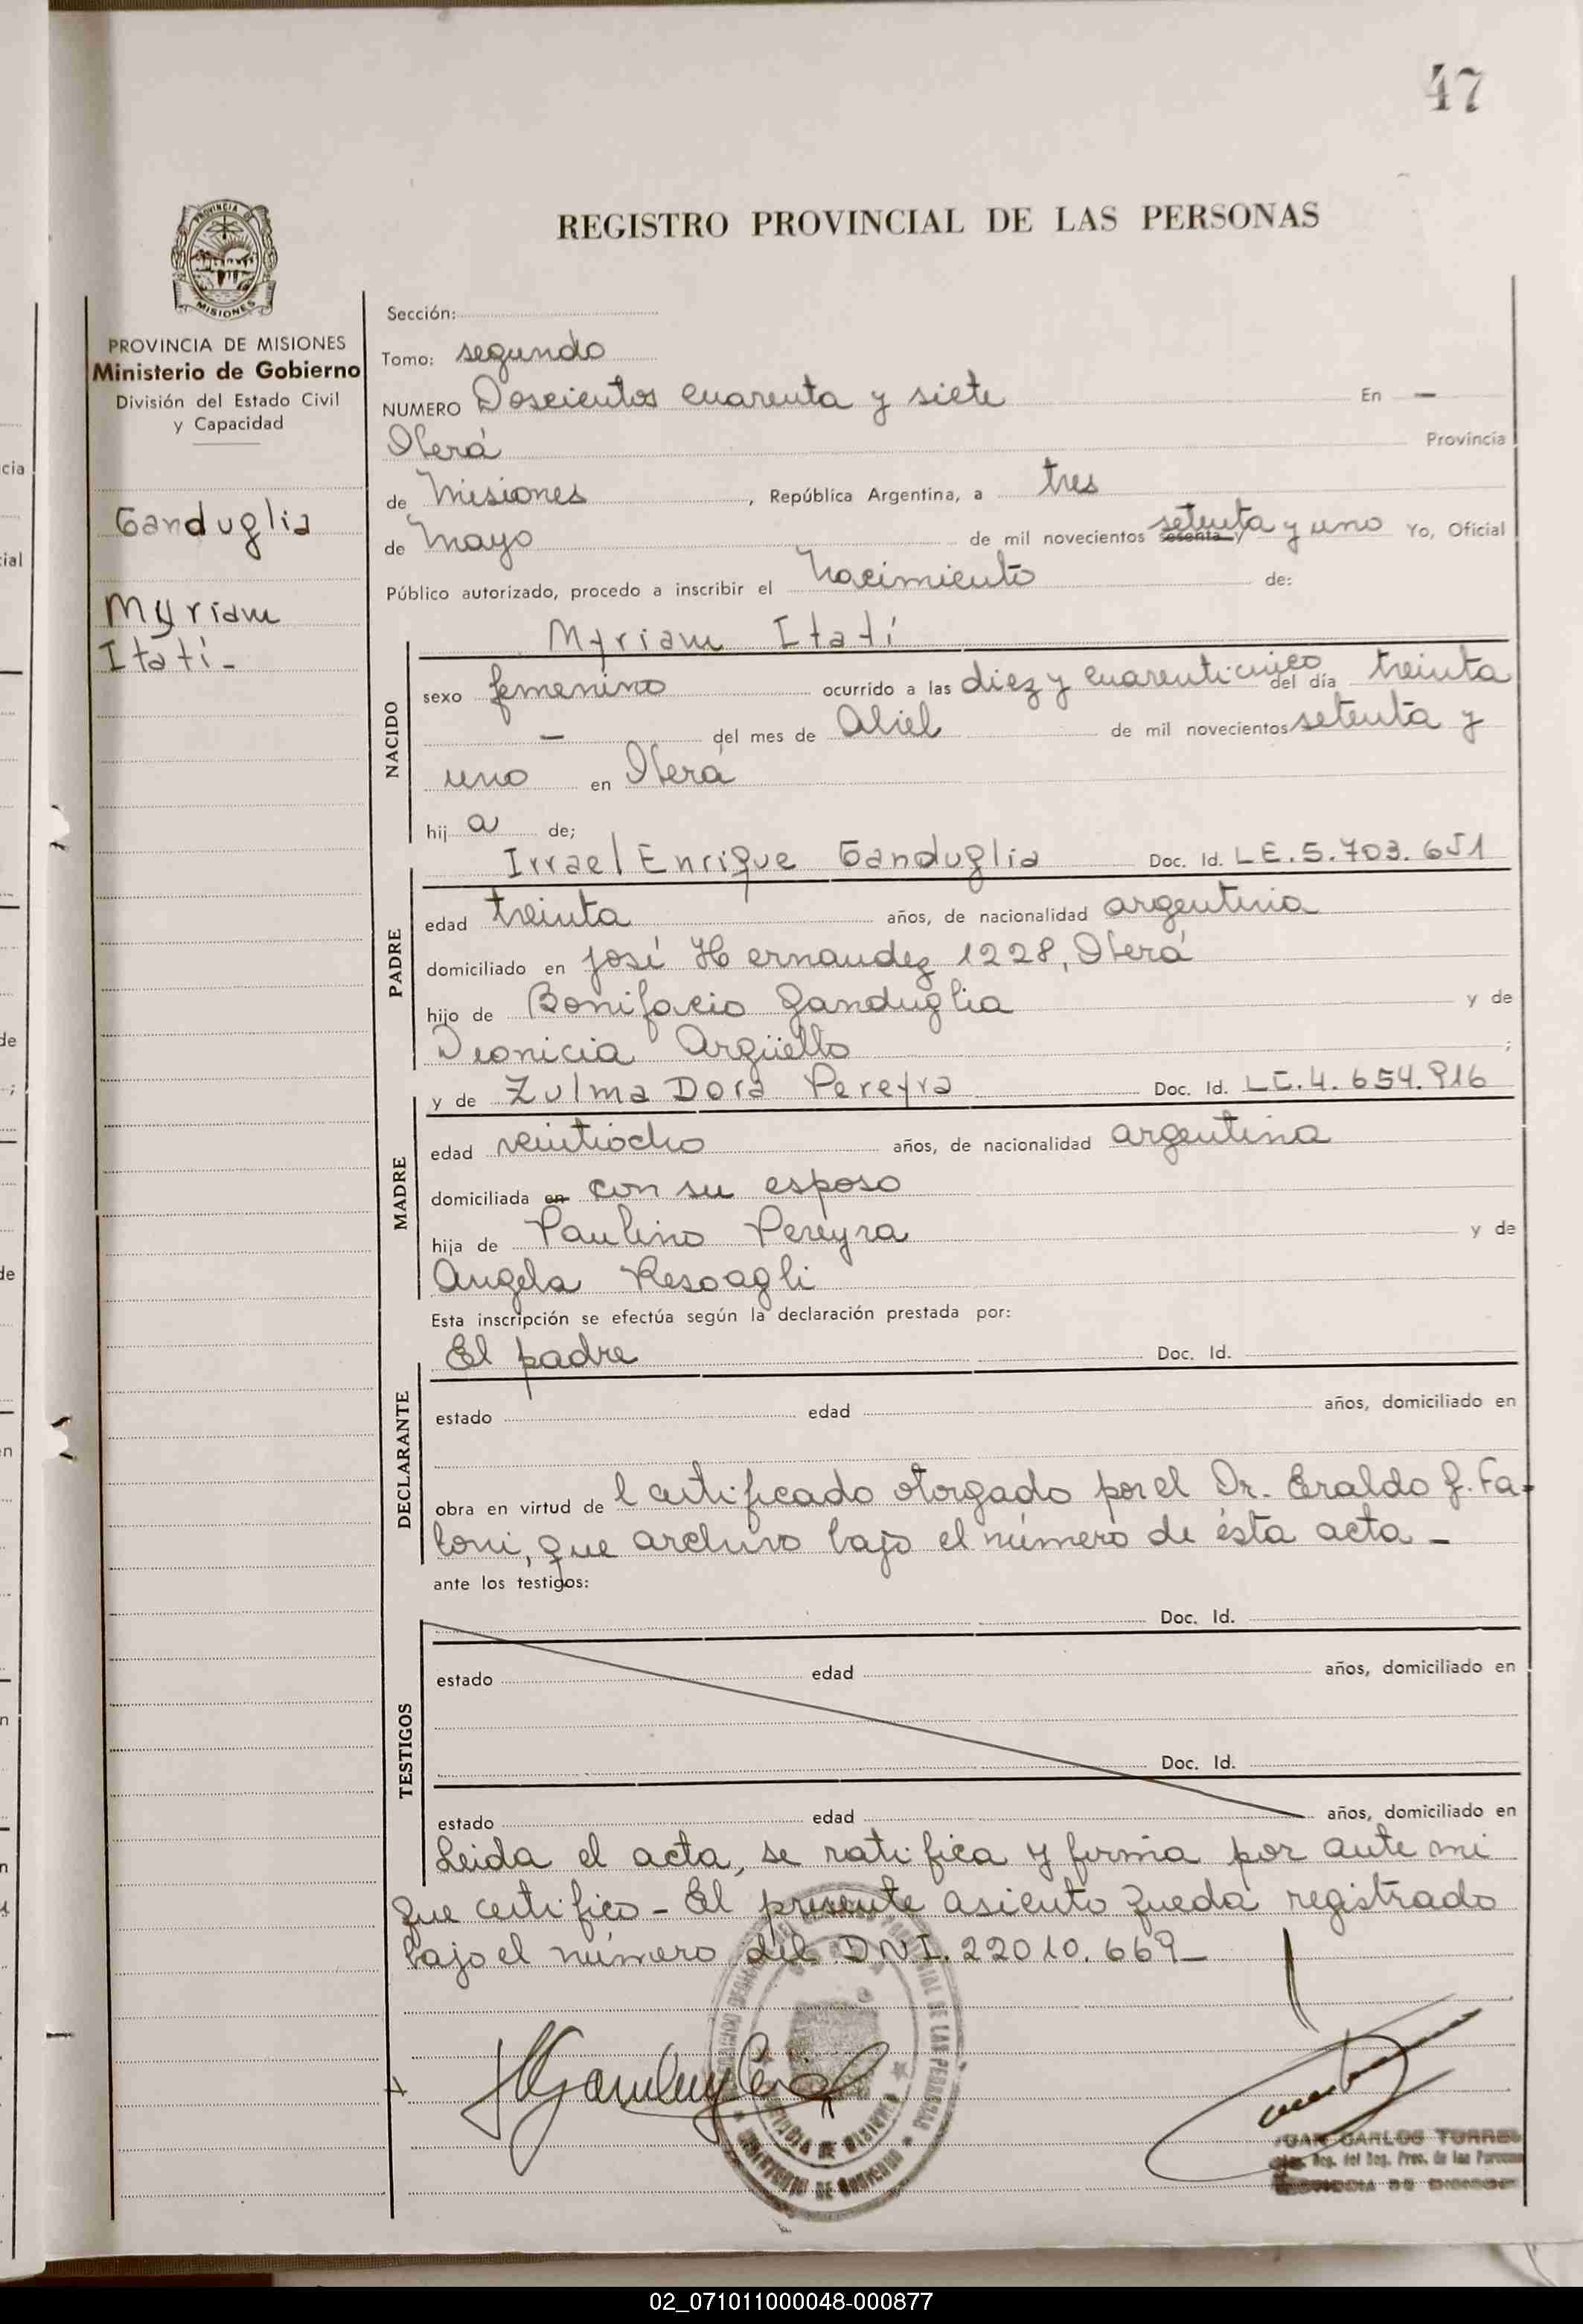 47
REGISTRO PROVINCIAL DE LAS PERSONAS
PROVINCIA DE MISIONES
PROVINCIA DE MISIONES
Ministerio de Gobierno
División del Estado Civil
y Capacidad
Ganduglia
Myriam
Itatí-
Sección:
Tomo: segundo
NUMERO Doscientos cuarenta y siete En —
Oberá Provincia
de Misiones, República Argentina, a tres
de Mayo de mil novecientos sesenta y setenta y uno Yo, Oficial
Público autorizado, procedo a inscribir el Nacimiento de:
Myriam Itatí
NACIDO
sexo femenino ocurrido a las diez y cuarenticinco del día treinta
— del mes de Abril de mil novecientos setenta y
uno en Oberá
hij a de;
PADRE
Irrael Enrique Ganduglia Doc. Id. L.E. 5.703.651
edad treinta años, de nacionalidad argentina
domiciliado en José Hernandez 1228, Oberá
hijo de Bonifacio Ganduglia y de
Deonicia Argüello ;
MADRE
y de Zulma Dora Pereyra Doc. Id. L.C. 4.654.916
edad veintiocho años, de nacionalidad argentina
domiciliada en con su esposo
hija de Paulino Pereyra y de
Angela Resoagli
Esta inscripción se efectúa según la declaración prestada por:
DECLARANTE
El padre Doc. Id.
estado edad años, domiciliado en
obra en virtud de l certificado otorgado por el Dr. Eraldo J. Fa-
boni, que archivo bajo el número de ésta acta -
ante los testigos:
TESTIGOS
Doc. Id.
estado edad años, domiciliado en
Doc. Id.
estado edad años, domiciliado en
Leida el acta, se ratifica y firma por ante mi
que certifico - El presente asiento queda registrado
bajo el número del D.N.I. 22010.669-
JUAN CARLOS TORRES
Reg. del Reg. Prov. de las Personas
02_071011000048-000877